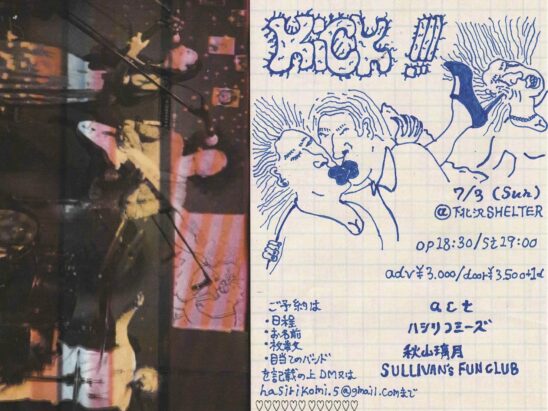 KiCK!!!
7/3 (Sun)
@下北沢SHELTER
op18:30/St19:00
adv¥3.000/door¥3.500+1d
act
ハシリコミーズ
秋山璃月
SULLIVAN's FUN CLUB
ご予約は
・日程
・お名前
・枚数
・目当てのバンド
を記載の上DM又は
hasirikomi.5@gmail.comまで
♡♡♡♡♡♡♡♡♡♡